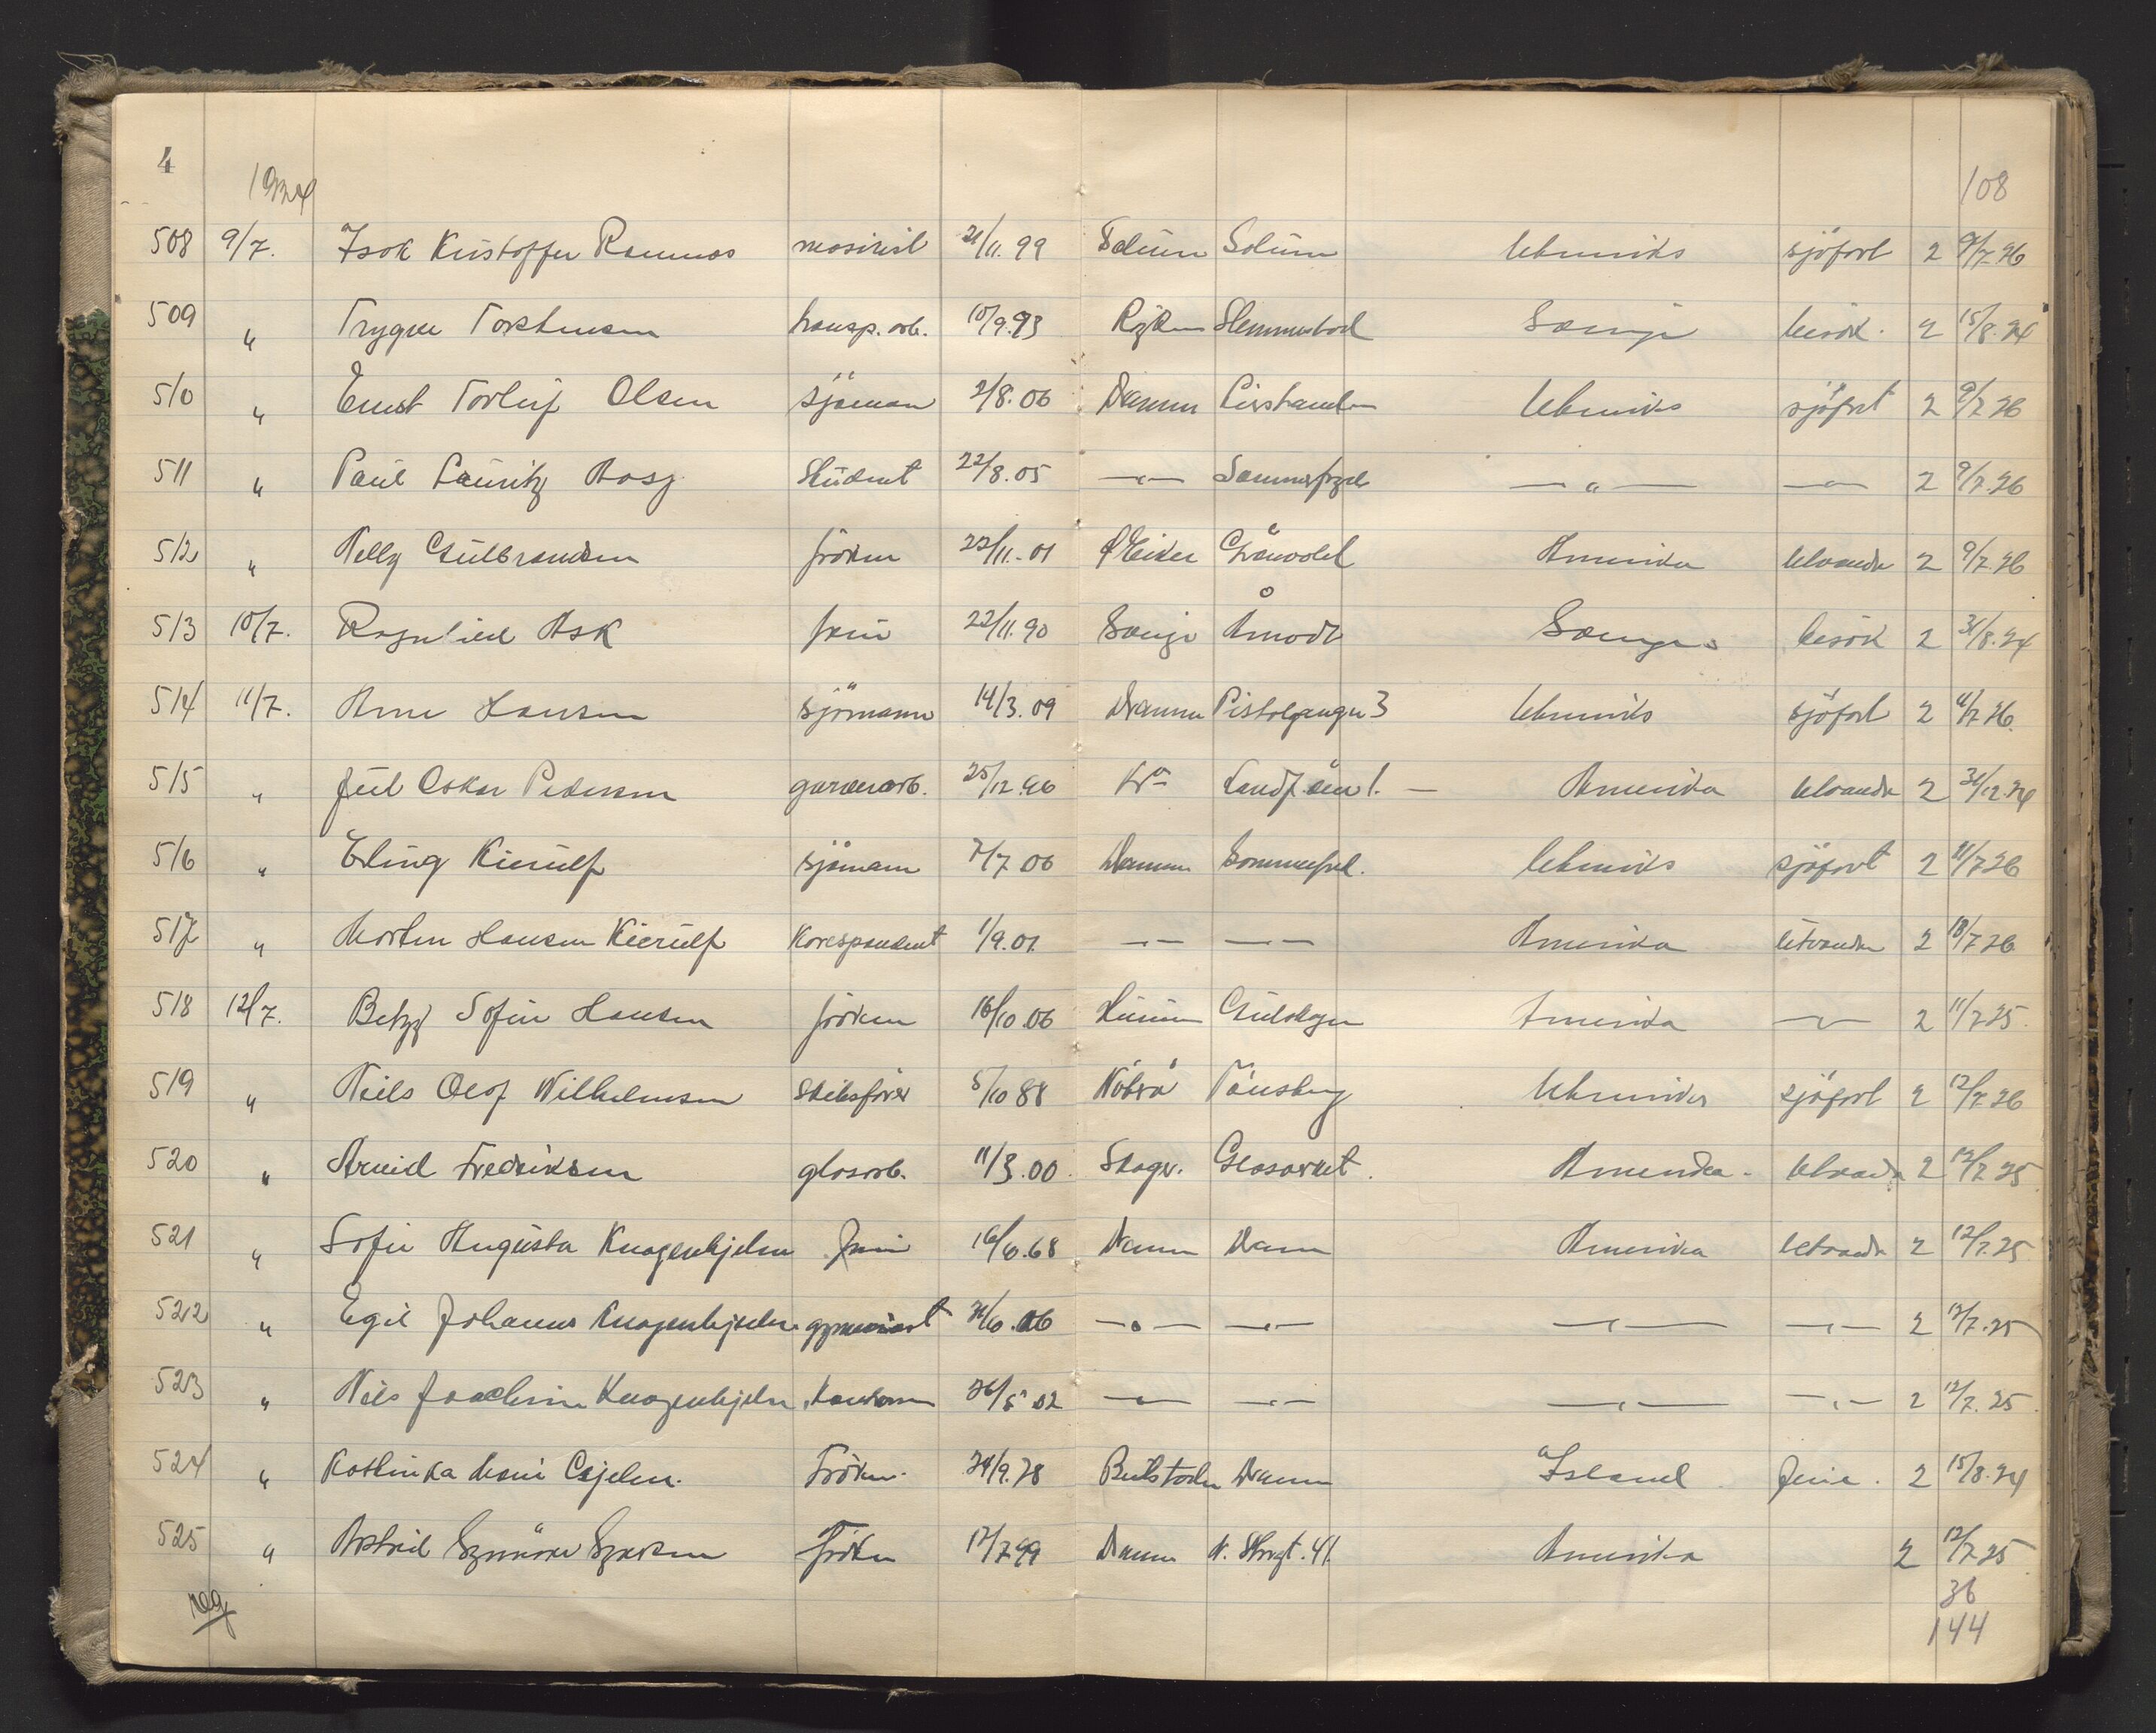 4
1924
108
508 9/7. Isak Kristoffer Ramnas maskinist 21/11. 99 Solum Solum Utenriks sjöfart 2 9/7 26
509 " Trygve Torstensen transp. arb. 10/9. 93 Röken Slemmestad Sverige besök. 2 15/8. 24
510 " Ernst Torleif Olsen sjöman 2/8. 06 Dramm Utenriks sjöfart 2 9/7 26
511 " Paul Lauritz Aass Student 22/8. 05 —"— Sommerfryd —"— —"— 2 9/7. 26
512 " Nelly Gulbrandsen fröken 22/11. 01 Ö Eiker Amerika utvandr 2 9/7. 26
513 10/7. Ragnhild Ask frue 22/11. 90 Sverige Åmodt Sverige besök 2 31/8. 24
514 11/7. Arne Hansen sjömann 14/3. 09 Dramm Pistolgangen 3 Utenriks sjöfart 2 11/7 26.
515 " Juel Oskar Pedersen garverarb. 25/12. 96 Amerika utvandr 2 31/12. 24
516 " Erling Kierulf sjömann 7/7 06 Dramm Sommerfryd. Utenriks sjöfart 2 11/7 26
517 " Morten Hansen Kierulf Korespondent 1/9. 01. —"— —"— Amerika utvandr 2 18/7 26
518 12/7. Betzy Sofie Hansen fröken 16/10. 06 Hurum Gulskogen Amerika —"— 2 11/7 25.
519 " Niels Olaf Wilhelmsen Skibsförer 5/10 88 Tönsberg Utenriks sjöfart 2 12/7 26
520 " Arvid Fredriksen glasarb. 11/3. 00. Skoger. Glasverket. Amerika utvandr 2 12/7 25.
521 " Sofie Augusta Knagenhjelm Frue 16/6. 68 Dramm Dramm Amerika utvandr 2 12/7. 25
522 " Egil Johannes Knagenhjelm gymnasiast 21/6. 06 —"— —"— —"— —"— 2 12/7. 25
523 " Niels Joachim Knagenhjelm Kontorm 26/5 02 —"— —"— —"— —"— 2 12/7. 25.
524 " Kathinka Marie Fröken. 24/9. 78 Dramm Island Ferie. 2 15/8. 24
525 " Astrid Fröken 17/7 99 Dramm N. Strgt. 41. Amerika 2 12/7 25
36
144